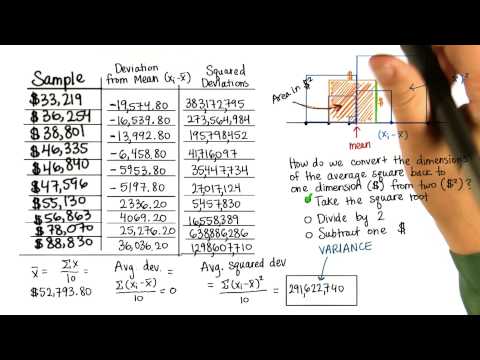 Sample
Deviation from Mean (xᵢ-x̄)
Squared Deviations
$33,219 -19,574.80 383,172,795
$36,254 -16,539.80 273,564,984
$38,801 -13,992.80 195,798,452
$46,335 -6,458.80 41,716,097
$46,840 -5953.80 35,447,734
$47,596 -5197.80 27,017,124
$55,130 2336.20 5,457,830
$56,863 4069.20 16,558,389
$78,070 25,276.20 638,886,286
$88,830 36,036.20 1,298,607,710
x̄ = Σx/10 =
$52,793.80
Avg. dev. =
Σ(xᵢ-x̄)/10 = 0
Avg. squared dev
= Σ(xᵢ-x̄)²/10 =
291,622,740
Area in $²
$
$
(xᵢ-x̄)
mean
How do we convert the dimensions
of the average square back to
one dimension ($) from two ($²)?
Take the square root
Divide by 2
Subtract one $
VARIANCE